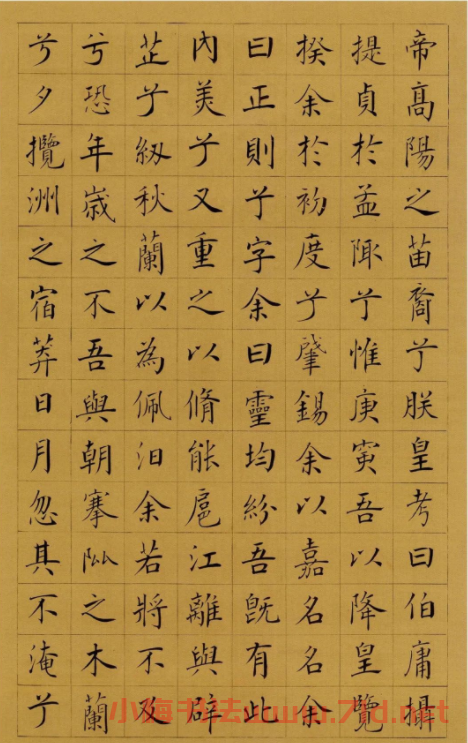 帝髙陽之苗裔兮朕皇考曰伯庸攝
提貞於孟陬兮惟庚寅吾以降皇覽
揆余於初度兮肇錫余以嘉名名余
曰正則兮字余曰靈均紛吾既有此
內美兮又重之以脩能扈江離與辟
芷兮紉秋蘭以為佩汩余若將不及
兮恐年歲之不吾與朝搴阰之木蘭
兮夕攬洲之宿莽日月忽其不淹兮
书法